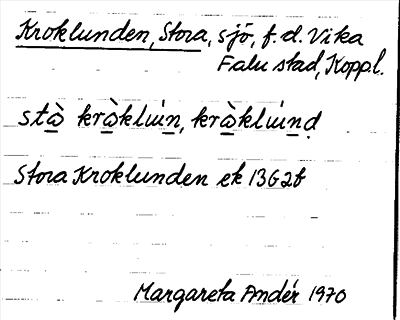 Kroklunden, Stora, sjö, f.d. Vika
Falu stad, Kopp.l.
stà̲ krà̲kluìn̲, krà̲kluìn̲ḍ
Stora Kroklunden ek 13G2b
Margareta Andér 1970